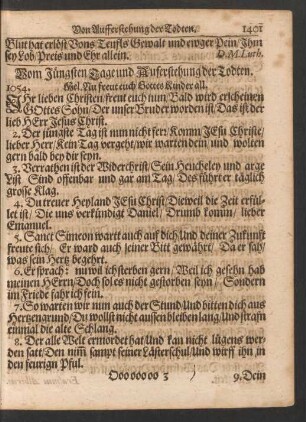 Von Aufferstehung der Todten. 1401
Blut hat erlöst Vons Teufls Gewalt und ewger Pein/ Ihm
sey Lob/ Preis und Ehr allein. D. M. Luth.
Vom Jüngsten Tage und Auferstehung der Todten.
1054. Mel. Nu freut euch Gottes Kinder all.
IHr lieben Christen freut euch nun/ Bald wird erscheinen
GOttes Sohn/ Der unser Bruder worden ist/ Das ist der
lieb HErr Jesus Christ.
2. Der jüngste Tag ist nun nicht fer: Komm JEsu Christe/
lieber Herr/ Kein Tag vergeht/ wir warten dein/ und wolten
gern bald bey dir seyn.
3. Verrathen ist der Widerchrist/ Sein Heucheley und arge
List Sind offenbar und gar am Tag/ Des führt er täglich
grosse Klag.
4. Du treuer Heyland JEsu Christ/ Dieweil die Zeit erfül-
let ist/ Die uns verkündigt Daniel/ Drumb komm/ lieber
Emanuel.
5. Sanct Simeon wartt auch auf dich/ Und deiner Zukunft
freute sich/ Er ward auch seiner Bitt gewährt/ Da er sah/
was sein Hertz begehrt.
6. Er sprach: nu wil ich sterben gern/ Weil ich gesehn hab
meinen HErrn/ Doch sol es nicht gestorben seyn/ Sondern
im Friede fahr ich fein.
7. So warten wir nun auch der Stund/ Und bitten dich aus
Hertzengrund/ Du wollst nicht aussen bleiben lang/ Und straf
einmal die alte Schlang.
8. Der alle Welt ermordet hat/ Und kan nicht lügens wer-
den satt/ Den nim̃ sampt seiner Lästerschul/ Und wirff ihn in
den feurign Pful.
Ooo ooo oo 3 9. Dein